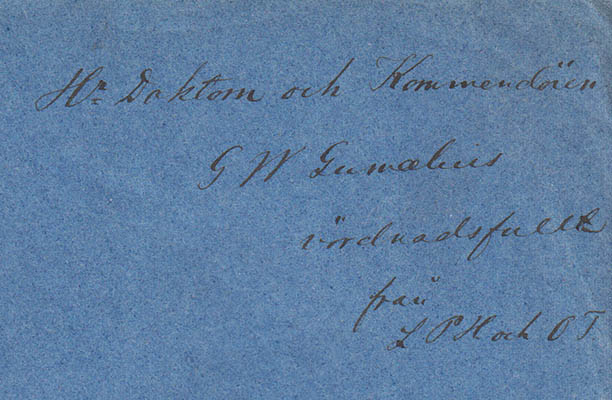 Hr Doktorn och Kommendören
G W Gumælius
vördnadsfullt
från
L P H och O T